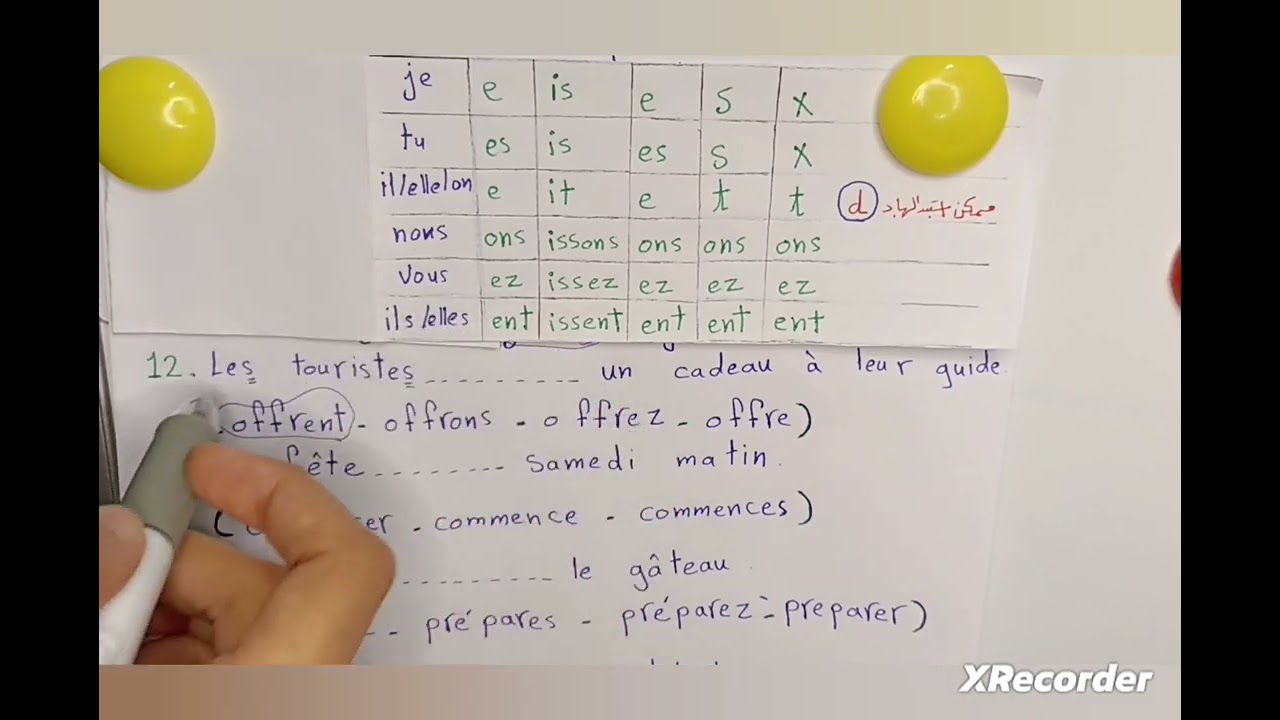 je e is e s x
tu es is es s x
il/elle/on e it e t t d ممكن استبدالها بـ
nous ons issons ons ons ons
vous ez issez ez ez ez
ils/elles ent issent ent ent ent
12. Les touristes .......... un cadeau à leur guide.
offrent - offrons - offrez - offre)
fête ........ samedi matin.
( er - commence - commences)
.......... le gâteau.
- prépares - préparez - preparer)
XRecorder